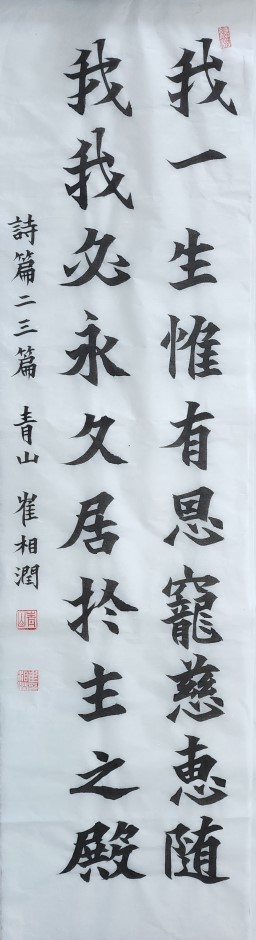 我一生惟有恩寵慈恵随
我我必永久居於主之殿
詩篇二三篇 青山 崔相潤